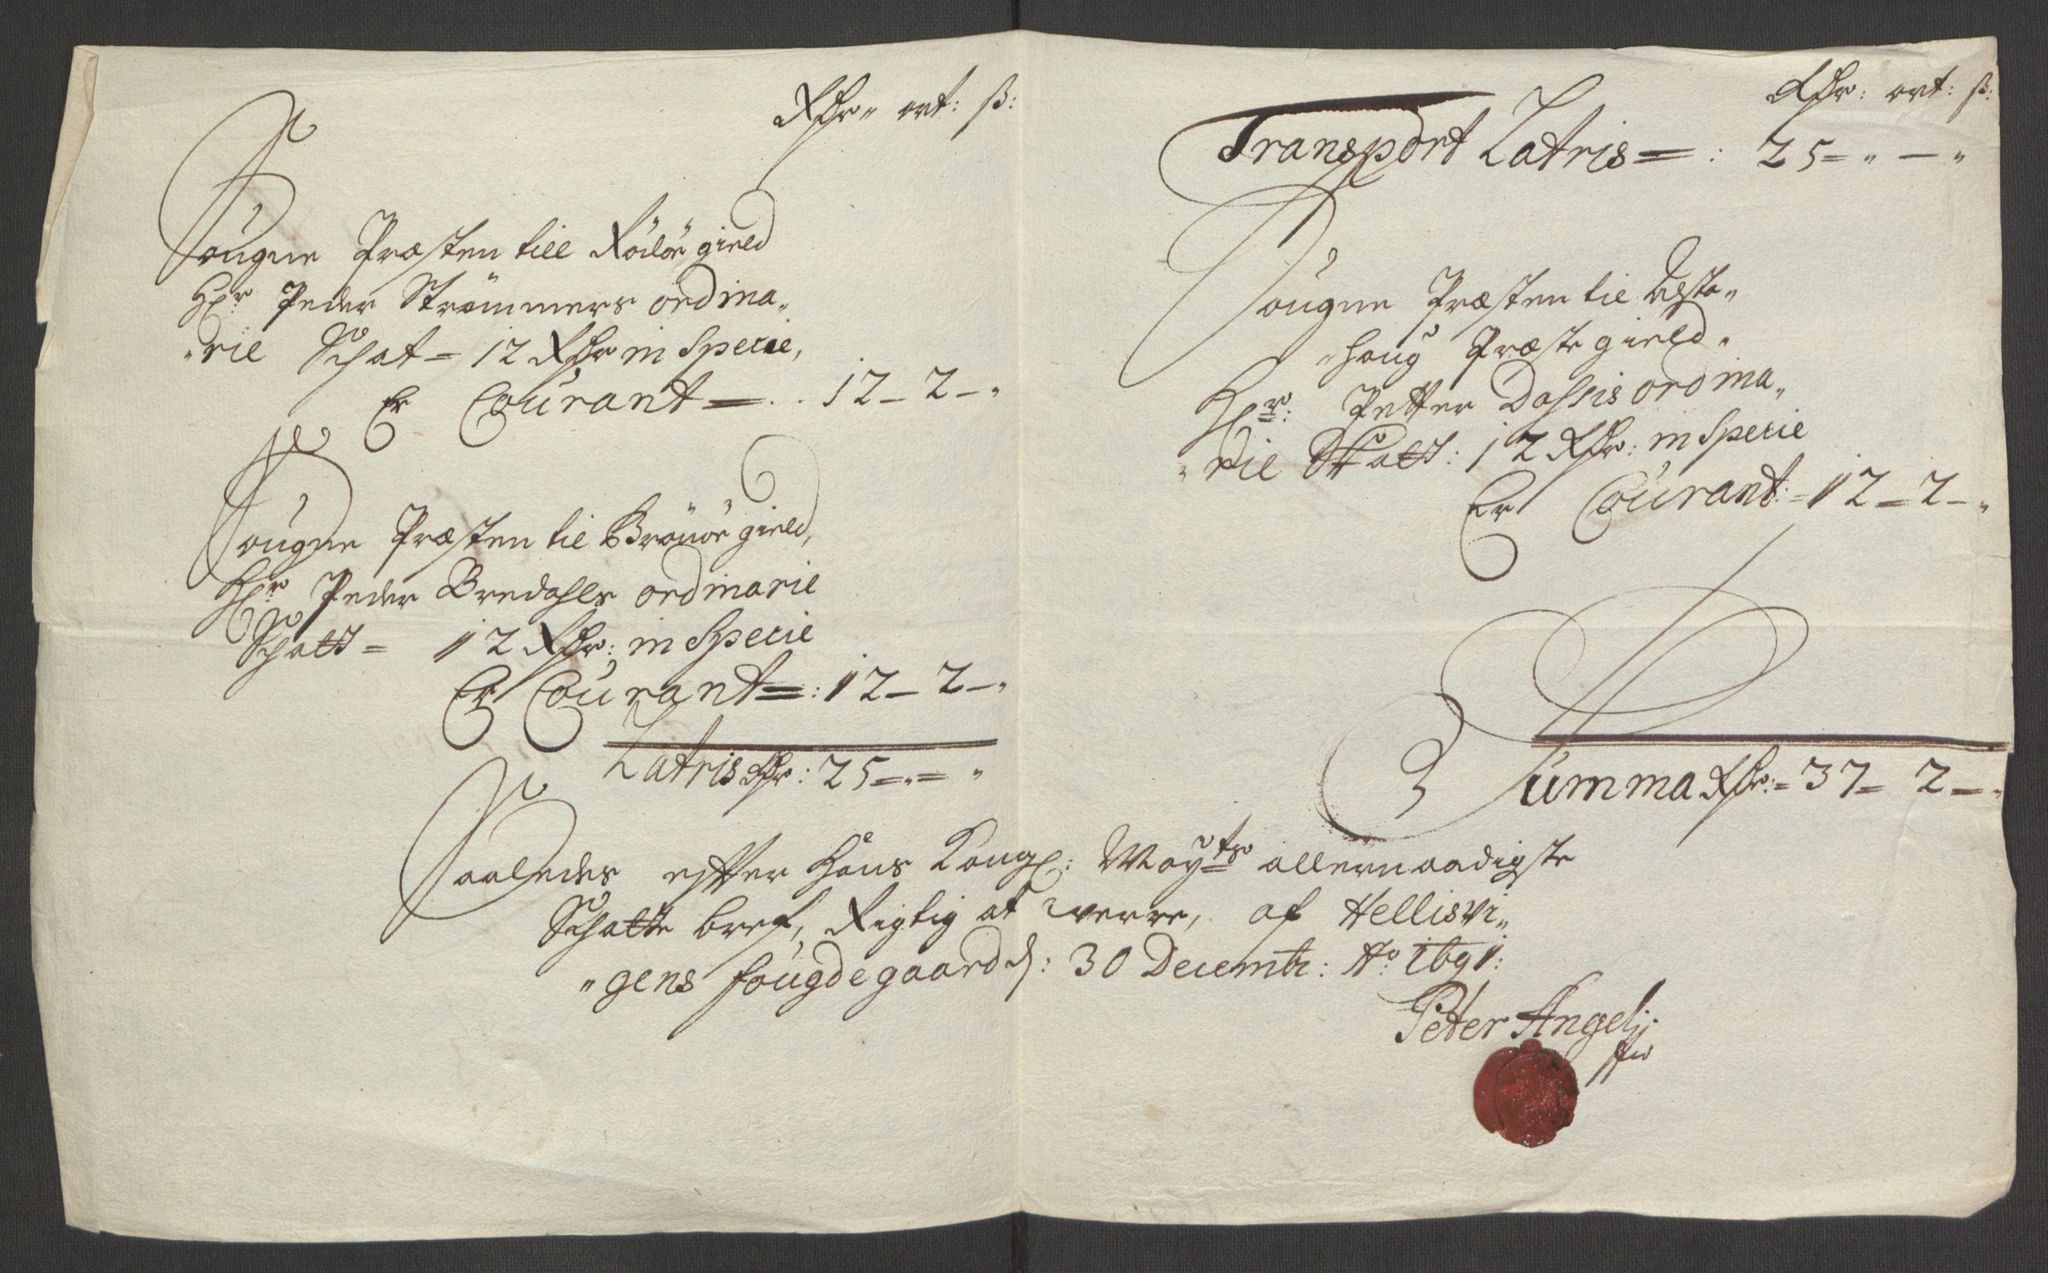 Rdr„ ort: ß:
Sougne Præsten till Rödöe gield
Hr Peder Strömmers ordina„
„rie Schat = 12 Rdr in Specie,
Er Courant = .. 12 – 2 – „
Sougne Præsten til Brönöe gield,
Hr Peder Bredahls ordinarie
Schatt = 12 Rdr: in Specie
Er Courant = : 12 – 2 – „
Latris Rdr: 25 = „ = „
Rdr: ort: ß:
Transport Latris = : 25 = „ – „
Sougne Præsten til Alsta„
„houg Præste gield„
Hr: Petter Dassis ordina„
„rie Skatt: 12 Rdr: in Specie
Er Courant: = 12 – 2 – „
Summa Rdr: = 37 = 2 – „
Saaledes efter Hans Kongl: Mayts allernaadigste
Schatte bref, Rigtig at werre, af Hellisvi„
„gens fougdegaard d: 30 Decembr: Ao 1691:
Peter Angelj